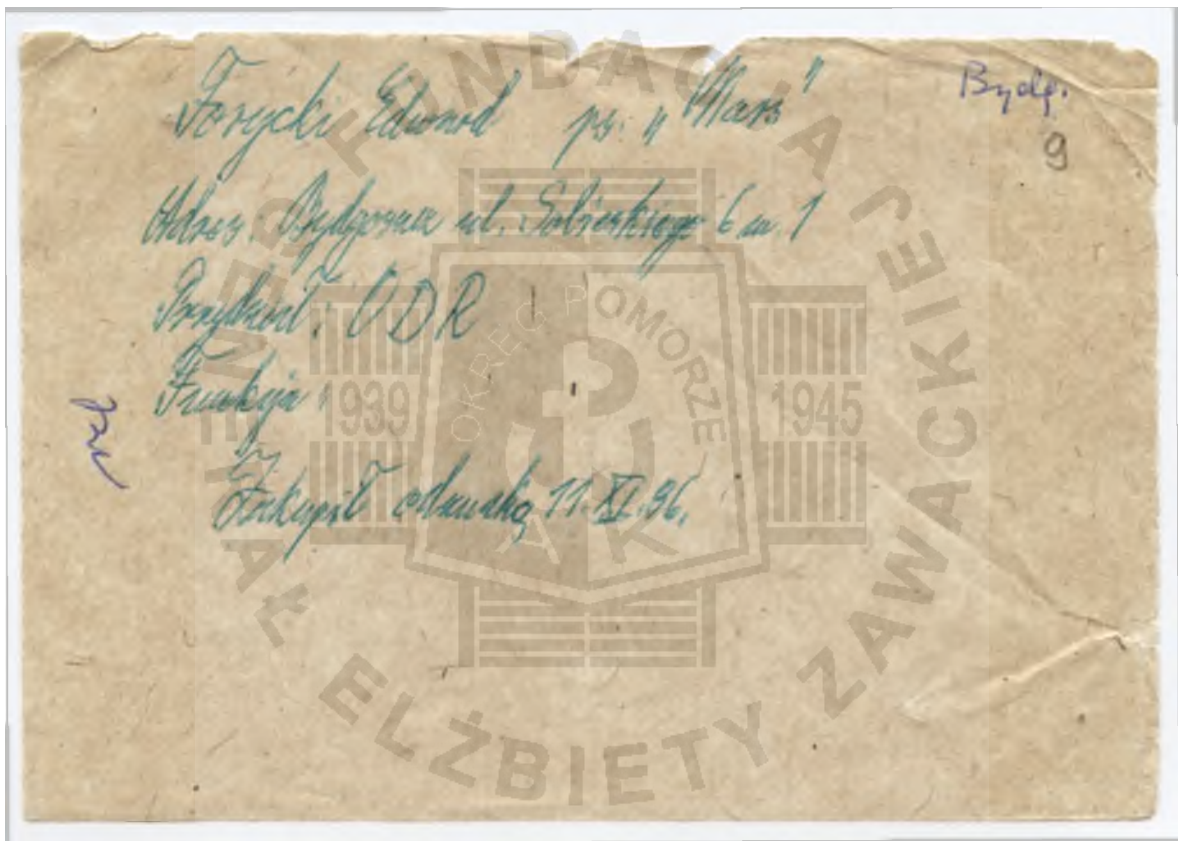 Forycki Edward ps. „Mars"
Bydg.
9
Adres. Bydgoszcz ul. Sobieskiego 6 m. 1
Przydział: ODR
Funkcja:
Zakupił odznakę 11.XI.96.
FUNDACJA GENERAŁ ELŻBIETY ZAWACKIEJ
OKRĘG POMORZE
1939
1945
AK